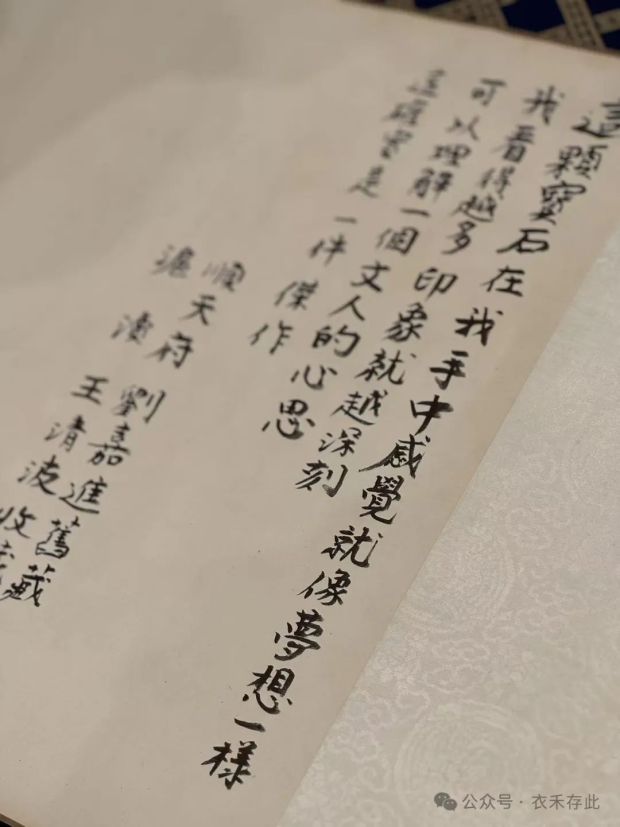 這顆寶石在我手中感覺就像夢想一樣
我看得越多印象就越深刻
可以理解一個文人的心思
這確實是一件傑作
順天府 劉嘉進舊藏
滬瀆 王清波收藏
公众号 · 衣禾存此